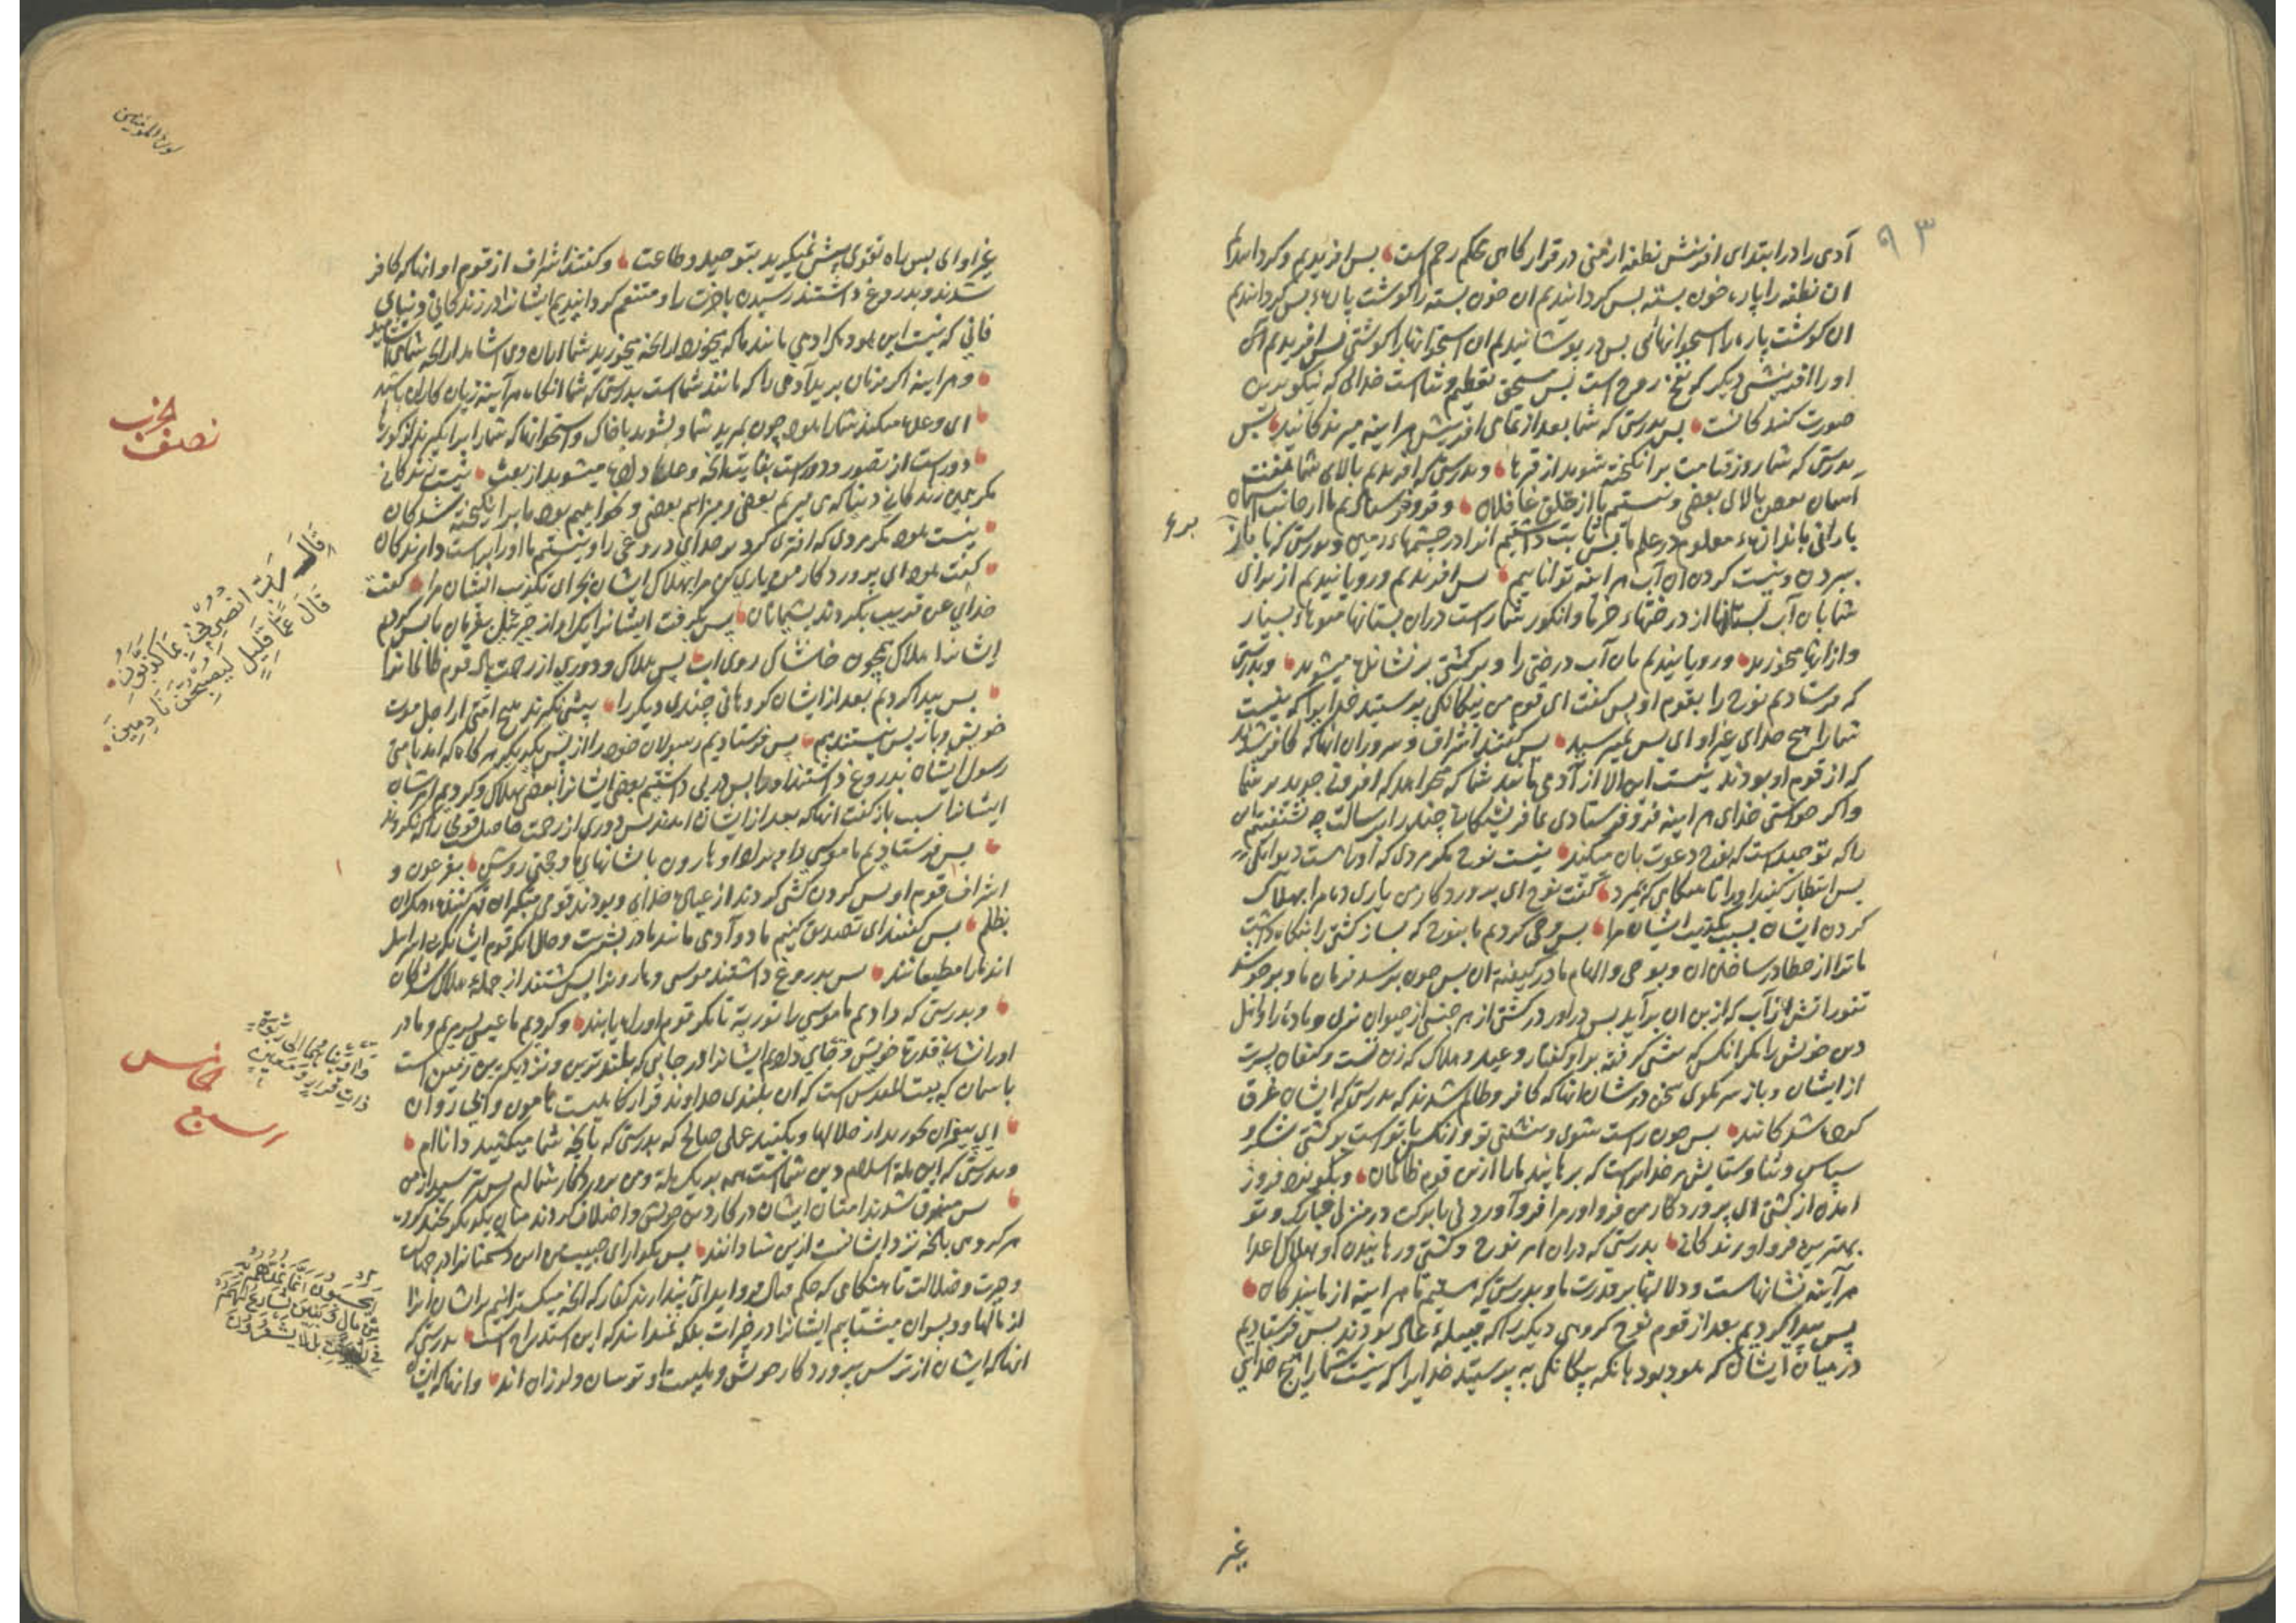 ۹۳
آدمی را در ابتدای افرنش نطفه از منی در قرار کاهی محکم رحم است پس افریدیم و کردانیدیم
ان نطفه را پاره خون بسته پس کردانیدیم ان خون بسته را کوشت پاره پس کردانیدیم
ان کوشت پاره را استخوانهائی پس در پوشانیدیم ان استخوانها را کوشتی پس افریدیم
او را افرینشی دیگر که نفخ روح است پس مستحق تعظیم و ثنا است خدائی که نیکوترین
صورت کنندکانست پس بدرستی که شما بعد از تمامی افرینش هر اینه میرندکانید پس
بدرستی که شما روز قیامت برانکیخته شوید از قبرها و بدرستی که افریدیم بالای شما هفت
اسمان بعضی بالای بعضی و نیستیم ما از خلق غافلان و فرو فرستادیم ما از جانب اسمان
بارانی باندازهء معلوم در علم ما پس ثابت داشتیم انرا در چشمهاء زمین و بدرستی که ما
ببردن و نیست کردن ان آب هر اینه توانائیم پس افریدیم و رویانیدیم از برای
شما بان آب بستانها از درختهاء خرما و انکور شما راست دران بستانها میوهاء بسیار
و ازانها میخورید و رویانیدیم بان آب درختی را و بر کشتی بر نشانده میشوید و بدرستی
که فرستادیم نوح را بقوم او پس کفت ای قوم من بیکانکی پرستید خدایرا که نیست
شما را هیچ خدای غیر او ای پس نمیترسید پس کفتند اشراف و سروران انها که کافر شدند
که از قوم او بودند نیست این الا از آدمی مانند شما که میخواهد که افزونی جوید بر شما
و اکر خواستی خدای هر اینه فرو فرستادی ما فرشتکانی چند را برسالت چه نشنفتیم
را که توحید است که نوح دعوت بان میکند نیست نوح مکر مردی که او راست دیوانکی
پس انتظار کنید او را تا هنکامی که بمیرد کفت نوح ای پروردکار من یاری ده مرا بهلاک
کردن ایشان بسبب تکذیب ایشان مرا پس وحی کردیم ما بنوح که بساز کشتی را بنکاه داشت
ما ترا از خطا در ساختن ان و بوحی و الهام ما در کیفیة ان پس چون برسد فرمان ما و بجوشد
تنور اتش از آب که ازین ان برآید پس دراور در کشتی از هر جنسی از حیوان نری و ماده را و اهل
دین خویش را مکر انکس که پیشی کرفته بر او کفتار وعید و هلاک که زن تست و کنعان پسرت
از ایشان و باز سر مکوی سخن در شان انها که کافر و ظالم شدند که بدرستی که ایشان غرق
کرده شدکانند پس چون راست شوی و بنشینی تو و انکس با تو است بر کشتی شکر و
سپاس و ثنا و ستایش مر خدایراست که برهانید ما را ازین قوم ظالمان و بکو نزد فروز
امدن از کشتی ای پروردکار من فرو اور مرا فرو آوردنی با برکت در منزلی مبارک و تو
بهترین فرو اورندکانی بدرستی که دران امر نوح و کشتی و رهانیدن او و هلاک اعدا
هر آینه نشانهاست و دلالتها بر قدرت ما و بدرستی که هستیم ما هر اینه ازمایندکان
پس پیدا کردیم بعد از قوم نوح کروهی دیگر را که قبیلهء عاد بودند پس فرستادیم
در میان ایشان که هود بود بانکه بیکانکی به پرستید خدایرا که نیست شما را هیچ خدایی
غیر
سورة المؤمنین
غیر او ای پس راه تقوی پیش نمیکیرید بتوحید و طاعت و کفتند اشراف از قوم او انها که کافر
شدند و بدروغ داشتند رسیدن باخرت را و متنعم کردانیدیم ایشانرا در زندکانی دنیای
فانی که نیست این هود مکر ادمی مانند ما که میخورد از انچه میخورید شما ازان و می اشامد از انچه شما می اشامید
و هر اینه اکر فرمان برید آدمی را که مانند شما است بدرستی که شما انکاه هر آینه زیان کاران باشید
ای وعده میکند شما را هود چون بمیرید شما و بشوید با خاک و استخوانها که شما را برانکیزند از کورها
دور است از تصور و دور است بغایت انچه وعده داده میشوید از بعث نیست زندکانی
مکر همین زندکانی دنیا که می میریم بعضی و میزاییم بعضی و نخواهیم بود ما برانکیخته شدکان
نیست هود مکر مردی که افتری کرد بر خدای دروغی را و نیستیم ما او را براست دارندکان
کفت هود ای پروردکار من یاری کن مرا بهلاک ایشان بجزای تکذیب ایشان مرا کفت
خدای عن قریب بکردند پشیمانان پس بکرفت ایشانرا یک اواز جبرئیل بفرمان ما پس کردیم
ایشانرا هلاک همچون خاشاک روی اب پس هلاک و دوری از رحمت باد قوم ظالمانرا
پس پیدا کردیم بعد از ایشان کروهانی چندی دیگر را پیشی نکیرند هیچ امتی از اجل موت
خویش و باز پس نیستندیم پس فرستادیم رسولان خود را از پس یکدیگر هر کاه که امد بامتی
رسول ایشان بدروغ داشتند او را پس در پی داشتیم بعضی ایشانرا بعضی بهلاک و کردیم امر شان
ایشانرا سبب باز کفت انها که بعد از ایشان امدند پس دوری از رحمت حاصل قومی را که نکروند
پس فرستادیم ما موسی را و برادر او هارون با نشانهای ما و حجتی روشن بفرعون و
اشراف قوم او پس کردن کشی کردند از عبادت خدای و بودند قومی متکبران قهر کنندهء دیگران
بظلم پس کفتند ای تصدیق کنیم ما دو آدمی مانند ما در بشریت و حال انکه قوم ایشان بنی اسرائیل
اند ما را مطیعانند پس بدروغ داشتند موسی و هارونرا پس کشتند از جمله هلاک شدکان
و بدرستی که دادیم ما موسی را توریة تا مکر قوم او راه یابند و کردیم ما عیسی پسر مریم و مادر
او را نشانهء قدرة خویش و جای دادیم ایشانرا در جایی که بلندترین و نزدیکترین زمین است
باسمان که بیت المقدس است که ان بلندی خداوند قرار کاهیست هامون و ابی روان
ای پیغمبران بخورید از حلالها و بکنید عملی صالح که بدرستی که من بانچه شما میکنید داناام
و بدرستی که این ملة اسلام دین شماست همه بر یک ملة و من پروردکار شماام پس بترسید از من
پس متفرق شدند امتان ایشان در کار دین خویش و اختلاف کردند میان یکدیگر
هر کروهی بانچه نزد ایشانست ازین شادانند پس بکذار ای حبیب من این دشمنانرا در جهالت
و حیرت و ضلالت تا هنکامی که حکم قتال فرود اید ای پندارند کفار که انچه میکسترانیم بر ایشان انرا
از مالها و پسران میشتابیم ایشانرا در خیرات بلکه نمیدانند که این استدراج است بدرستی که
انها که ایشان از ترس پروردکار خویش و هیبت او ترسان و لرزان اند و انها که ایشان
نصف الجزب
قَالَ رَبِّ انْصُرْنِي بِمَا كَذَّبُونِ
قَالَ عَمَّا قَلِيلٍ لَيُصْبِحُنَّ نَادِمِينَ
وَآوَيْنَاهُمَا إِلَى رَبْوَةٍ
ذَاتِ قَرَارٍ وَمَعِينٍ
خامس
أَيَحْسَبُونَ أَنَّمَا نُمِدُّهُمْ بِهِ
مِنْ مَالٍ وَبَنِينَ نُسَارِعُ لَهُمْ
فِي الْخَيْرَاتِ بَلْ لَا يَشْعُرُونَ